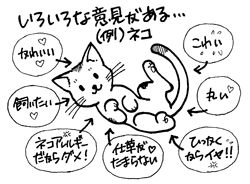 いろいろな意見がある…
(例)ネコ
かわいい♡
こわい
飼いたい♡
丸い♡
ネコアレルギー
だからダメ!
仕草が♡
たまらない
ひっかく
からイヤ!!